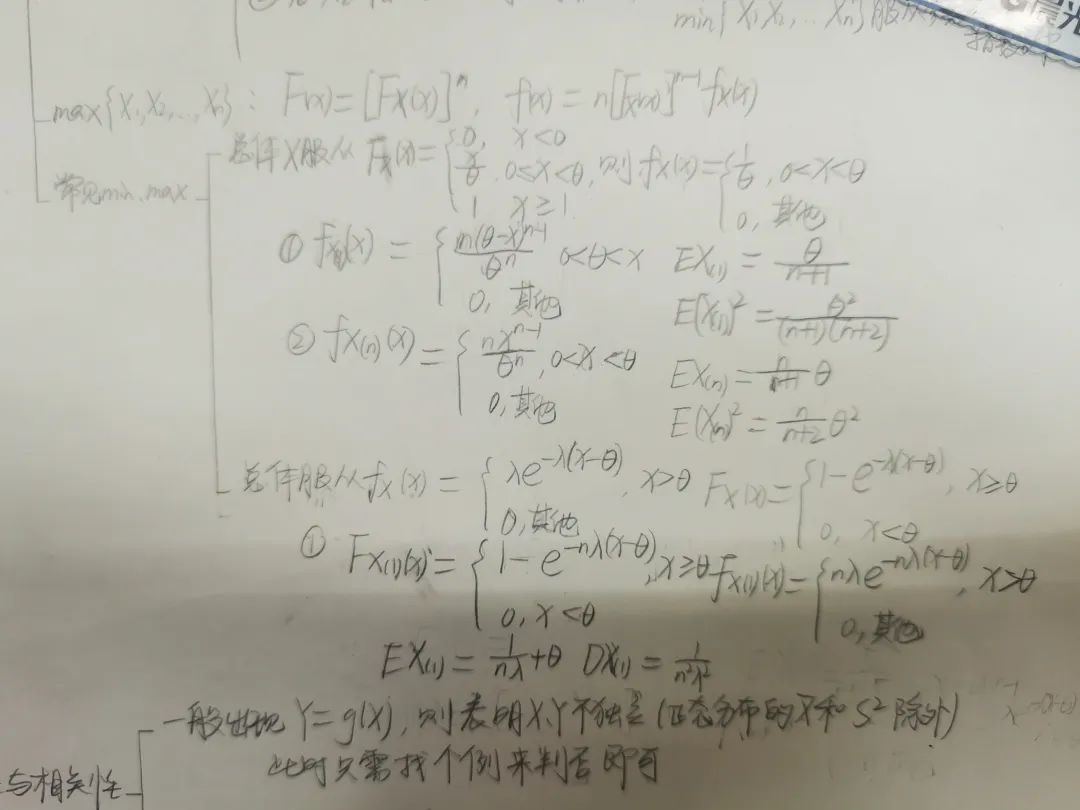 min{X₁,X₂,…Xn}服从
指数
晨光
max{X₁,X₂,…,Xn}: F(x)=[Fx(x)]^n, f(x)=n[Fx(x)]^{n-1}fx(x)
常见min、max
总体X服从 Fx(x)={0, x<0
x/θ, 0<x<θ, 则 fx(x)={1/θ, 0<x<θ
1 x≥1
0, 其他
① f_{X(1)}(x)={n(θ-x)^{n-1}/θ^n 0<θ<x EX(1)=θ/(n+1)
0, 其他
E(X(1))²=θ²/((n+1)(n+2))
② f_{X(n)}(x)={nx^{n-1}/θ^n, 0<x<θ
0, 其他
EX(n)=n/(n+1) θ
E(X(n))²=n/(n+2) θ²
总体服从 fx(x)={λe^{-λ(x-θ)}, x>θ Fx(x)={1-e^{-λ(x-θ)}, x≥θ
0, 其他
0, x<θ
① F_{X(1)}(x)={1-e^{-nλ(x-θ)}, x≥θ f_{X(1)}(x)={nλe^{-nλ(x-θ)}, x>θ
0, x<θ
0, 其他
EX(1)=1/(nλ)+θ DX(1)=1/(n²λ²)
一般出现 Y=g(X), 则表明X、Y不独立(正态分布的X̄和S²除外)
此时只需找个例来判否即可
与相关性